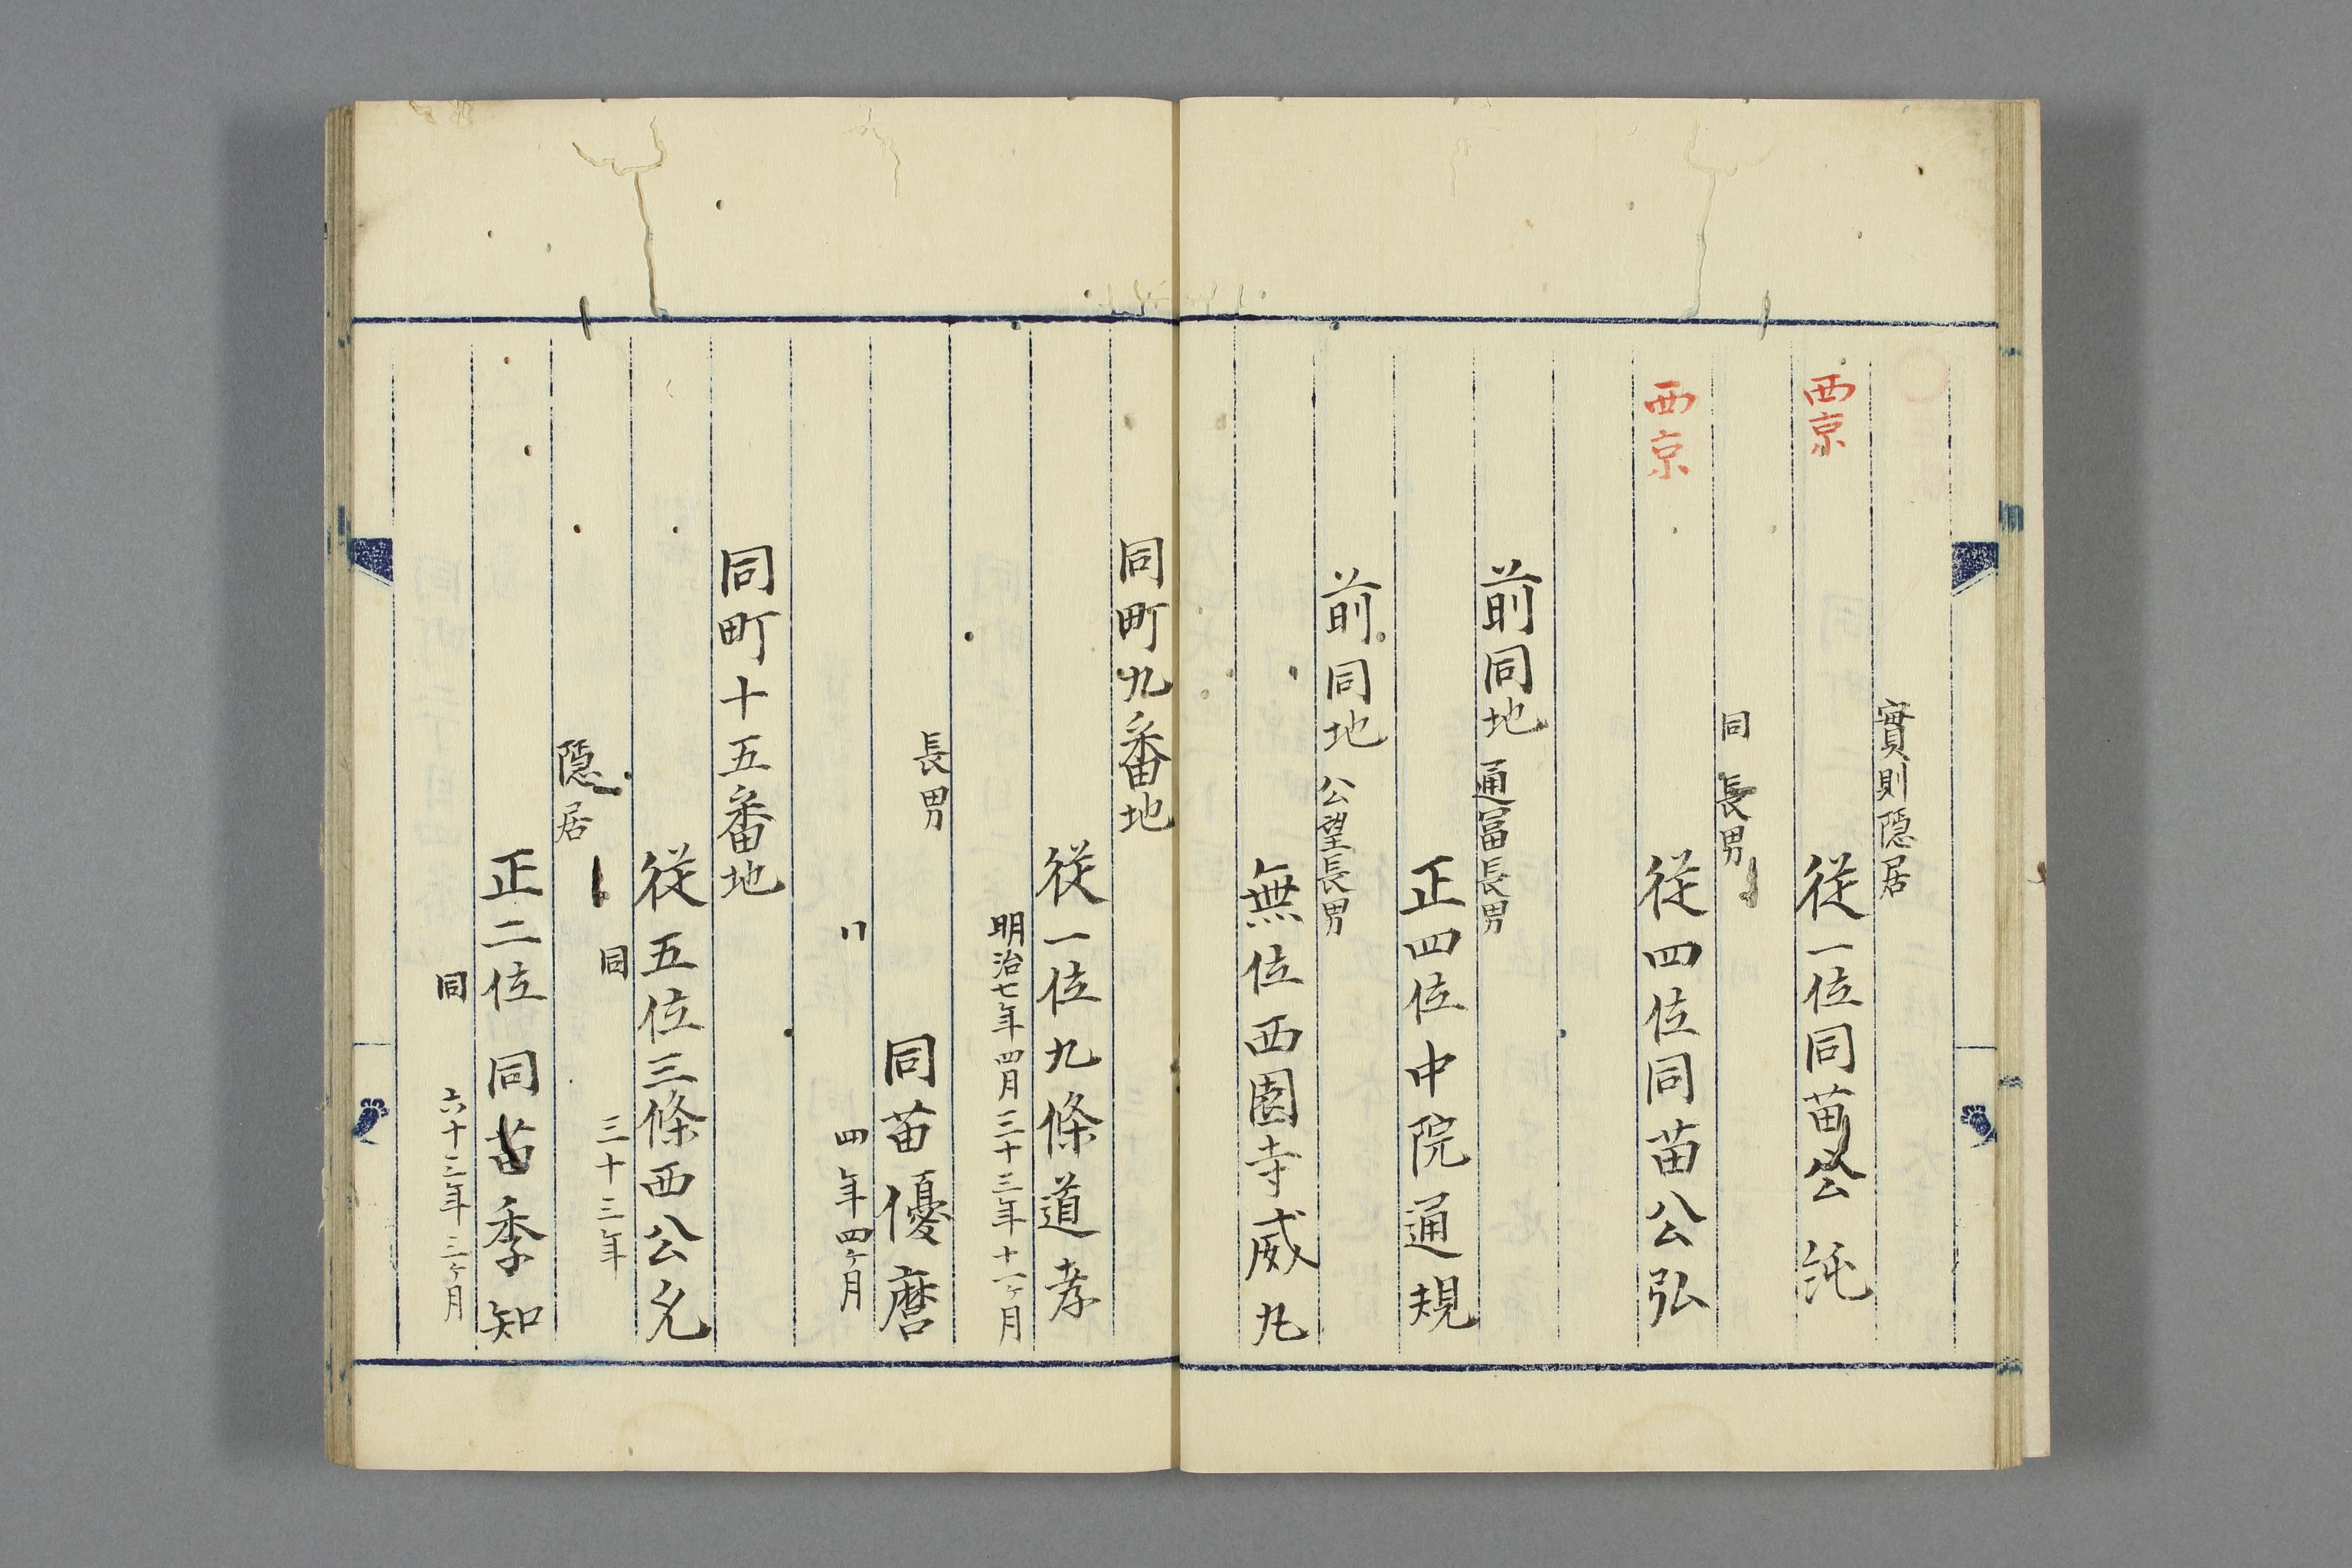 實則隠居
西京
従一位同苗公純
同長男
西京
従四位同苗公弘
前同地 通冨長男
正四位中院通規
前同地 公望長男
無位西園寺威丸
同町九番地
従一位九條道孝
明治七年四月三十三年十一ヶ月
長男
同苗優麿
〃 四年四ヶ月
同町十五番地
従五位三條西公允
同 三十三年
隠居
正二位同苗季知
同 六十三年三ヶ月